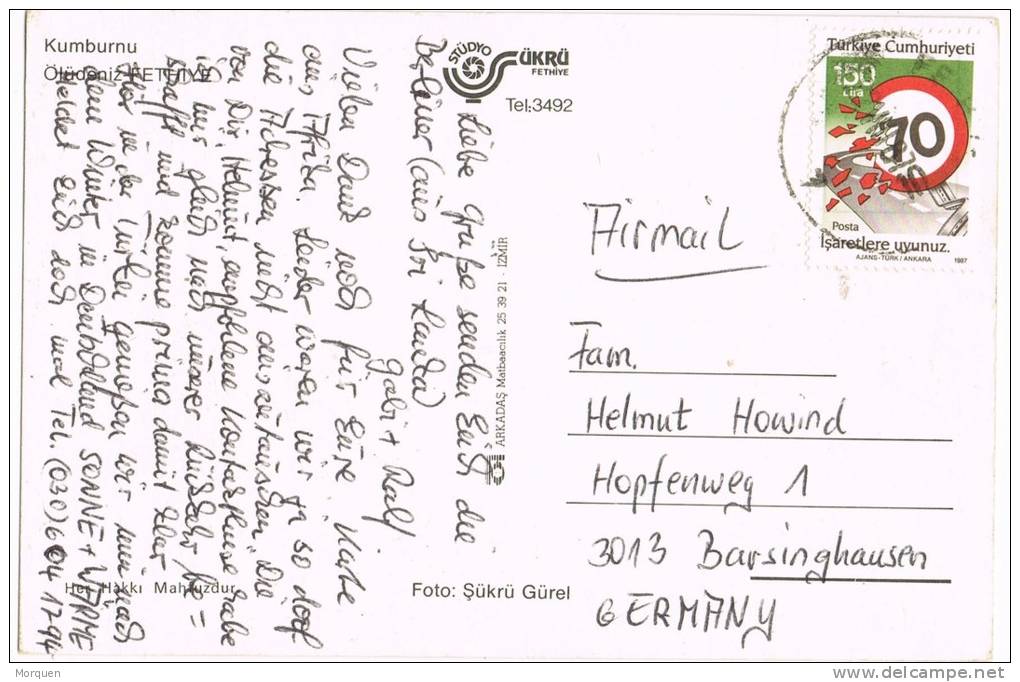 Kumburnu
Ölüdeniz FETHİYE
STÜDYO ŞÜKRÜ
FETHİYE
Tel:3492
Liebe Grüße senden Euch die
Berliner (aus Sri Lanka)
Gabi + Ralf
Vielen Dank noch für Eure Karte
aus Afrika. Leider waren wir ja so doof
die Adressen nicht auszutauschen. Die
von Dir, Helmut, empfohlene Kontaktlinse habe
ich mir gleich nach unserer Rückkehr be=
schafft und komme prima damit klar.
Hier in der Türkei genießen wir nun nach
dem Winter in Deutschland SONNE + WÄRME
Meldet Euch doch mal Tel. (030) 6 04 17 94
Her Hakkı Mahfuzdur
Foto: Şükrü Gürel
ARKADAŞ Matbaacılık 25 39 21 - İZMİR
Türkiye Cumhuriyeti
150
Lira
70
Posta
İşaretlere uyunuz.
AJANS-TÜRK / ANKARA 1987
Airmail
Fam.
Helmut Howind
Hopfenweg 1
3013 Barsinghausen
GERMANY
Morquen
delcampe.net